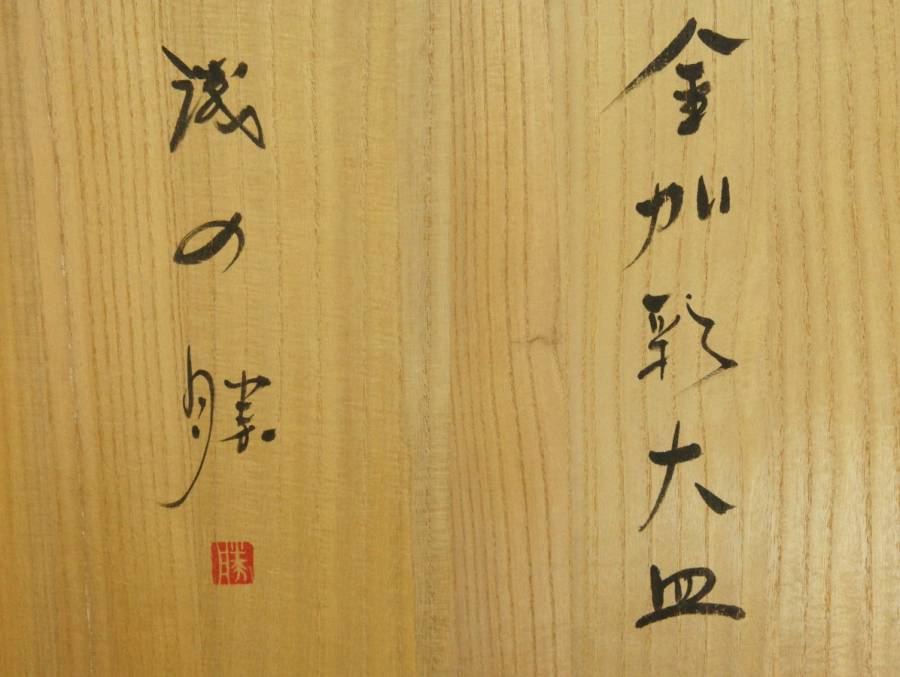 金加彩大皿
の勝
勝